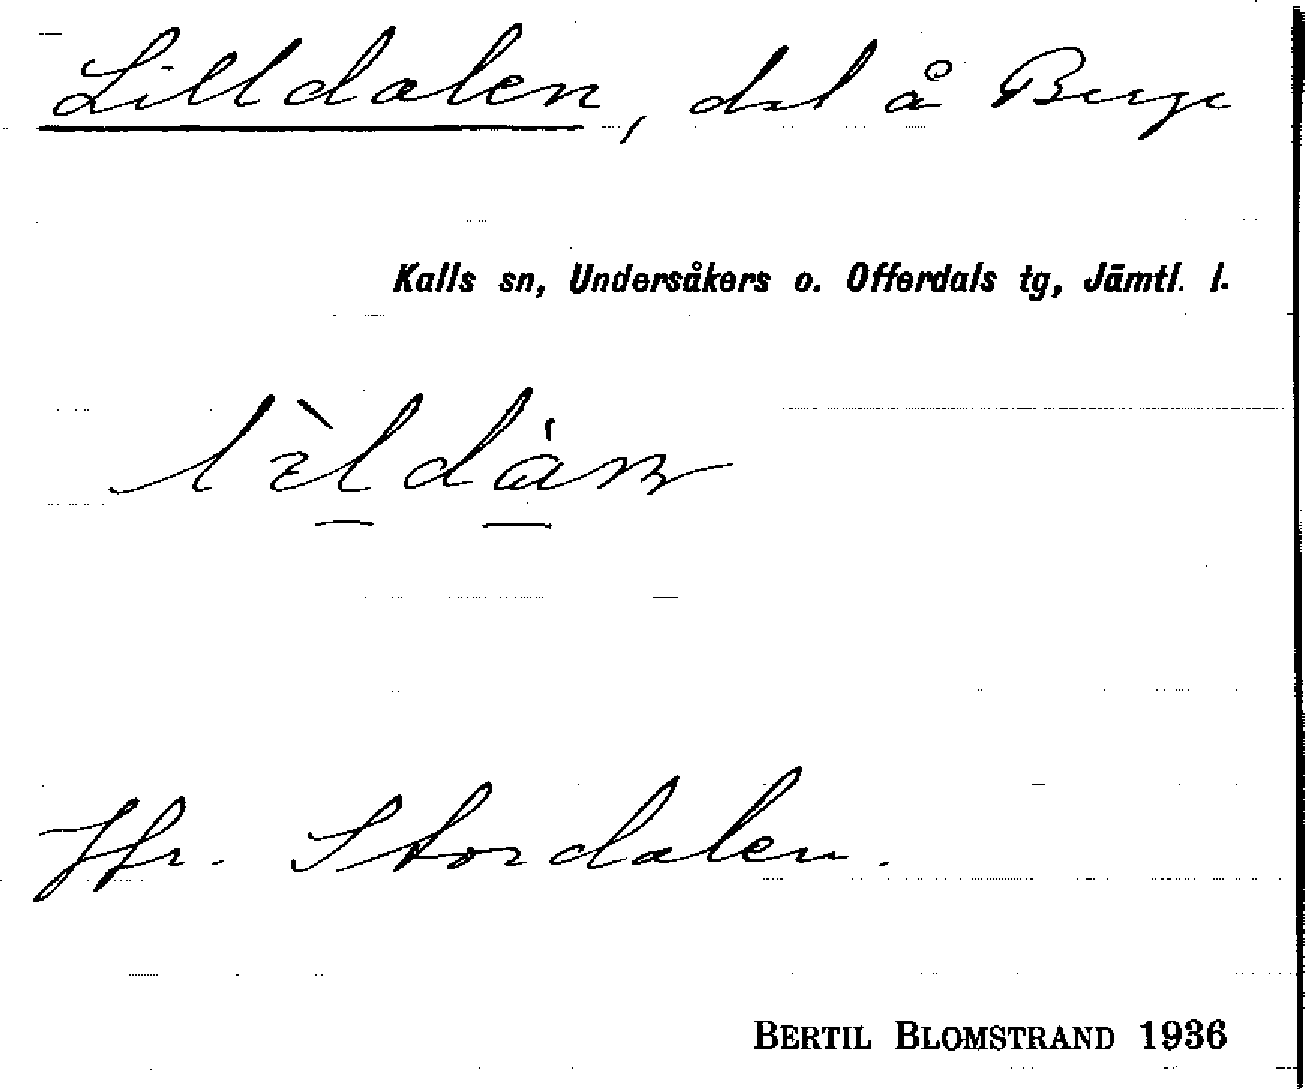 Lilldalen, dal å Berge
Kalls sn, Undersåkers o. Offerdals tg, Jämtl. l.
Jfr. Stordalen.
BERTIL BLOMSTRAND 1936